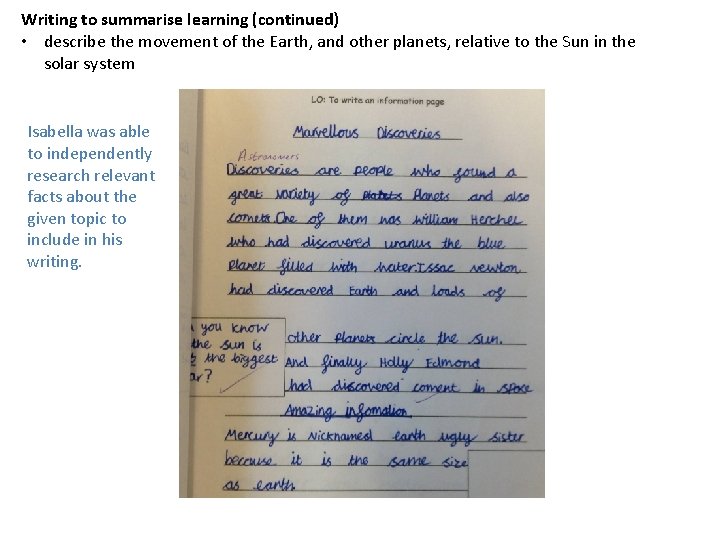 Writing to summarise learning (continued)
• describe the movement of the Earth, and other planets, relative to the Sun in the
solar system
Isabella was able
to independently
research relevant
facts about the
given topic to
include in his
writing.
LO: To write an information page
Marvellous Discoveries
Astronomers
Discoveries are people who found a
great variety of Planets and also
comets. One of them was William Hercher
who had discovered uranus the blue
Planet filled with water. Issac newton
had discovered Earth and loads of
you know
the sun is
the biggest
ar?
other Planets circle the sun.
And finally Holly Edmond
had discovered coment in space
Amazing infomation
Mercury is Nicknamed earth ugly sister
because it is the same size
as earth